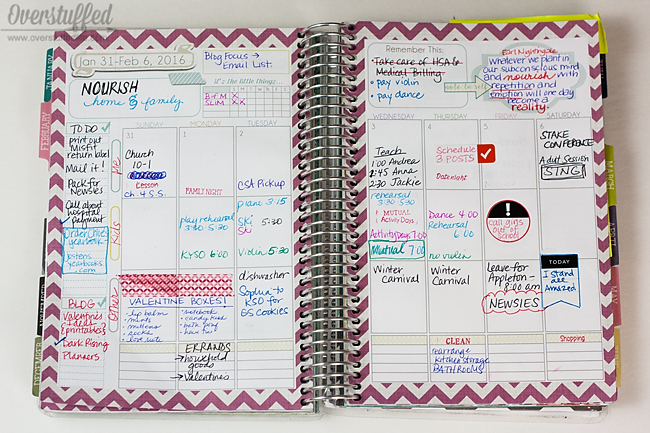 Overstuffed
www.overstuff
Jan 31-Feb 6, 2016
Blog Focus →
Email List
it's the little things...
NOURISH
home & family
M T W T F S
SLIM X
TO DO ✓
print out
Misfit
return label
Mail it!
Pack for
Newsies
Call about
hospital
payment
Order Chloe's
yearbook
jostens
yearbooks
.com
BLOG ✓
Valentines
printables
Dark Rising
Planners
JANUARY
FEBRUARY
DECEMBER
me
kids
other
SUNDAY
MONDAY
TUESDAY
31
1
2
Church
10-1
Lesson
ch. 4 S.S.
FAMILY NIGHT
CSA Pickup
play rehearsal
3:30 5:30
KYSO 6:00
piano 3:15
Ski 5:30
Violin 5:30
VALENTINE BOXES!
• lip balm
• mints
• mittens
• socks
• love note
• notebook
• candy kind
• hair tie
dishwasher
Sophia to
KSO for
GS cookies
ERRANDS
→ household
goods
→ Valentines
Remember This:
• Take care of HSA &
Medical Billing
• pay violin
• pay dance
Earl Nightingale
Whatever we plant in
our subconscious mind
and nourish with
repetition and
emotion will one day
become a
reality.
WEDNESDAY
THURSDAY
FRIDAY
SATURDAY
3
4
5
6
Teach
1:00 Andrea
1:45 Anna
2:30 Jackie
Schedule
3 POSTS
Date night
STAKE
CONFERENCE
Adult Session
SING!
rehearsal
3:30 5:30
MUTUAL
Activity Days
Activity Days 7:00
Mutual 7:00
Dance 4:00
Rehearsal
6:00
no violin
!
Call girls
Out of
School
Winter
Carnival
Winter
Carnival
Leave for
Appleton -
8:00 am
NEWSIES
TODAY
I stand
all
Amazed
CLEAN
rearrange
kitchen storage
BATHROOMS
Shopping
MARCH